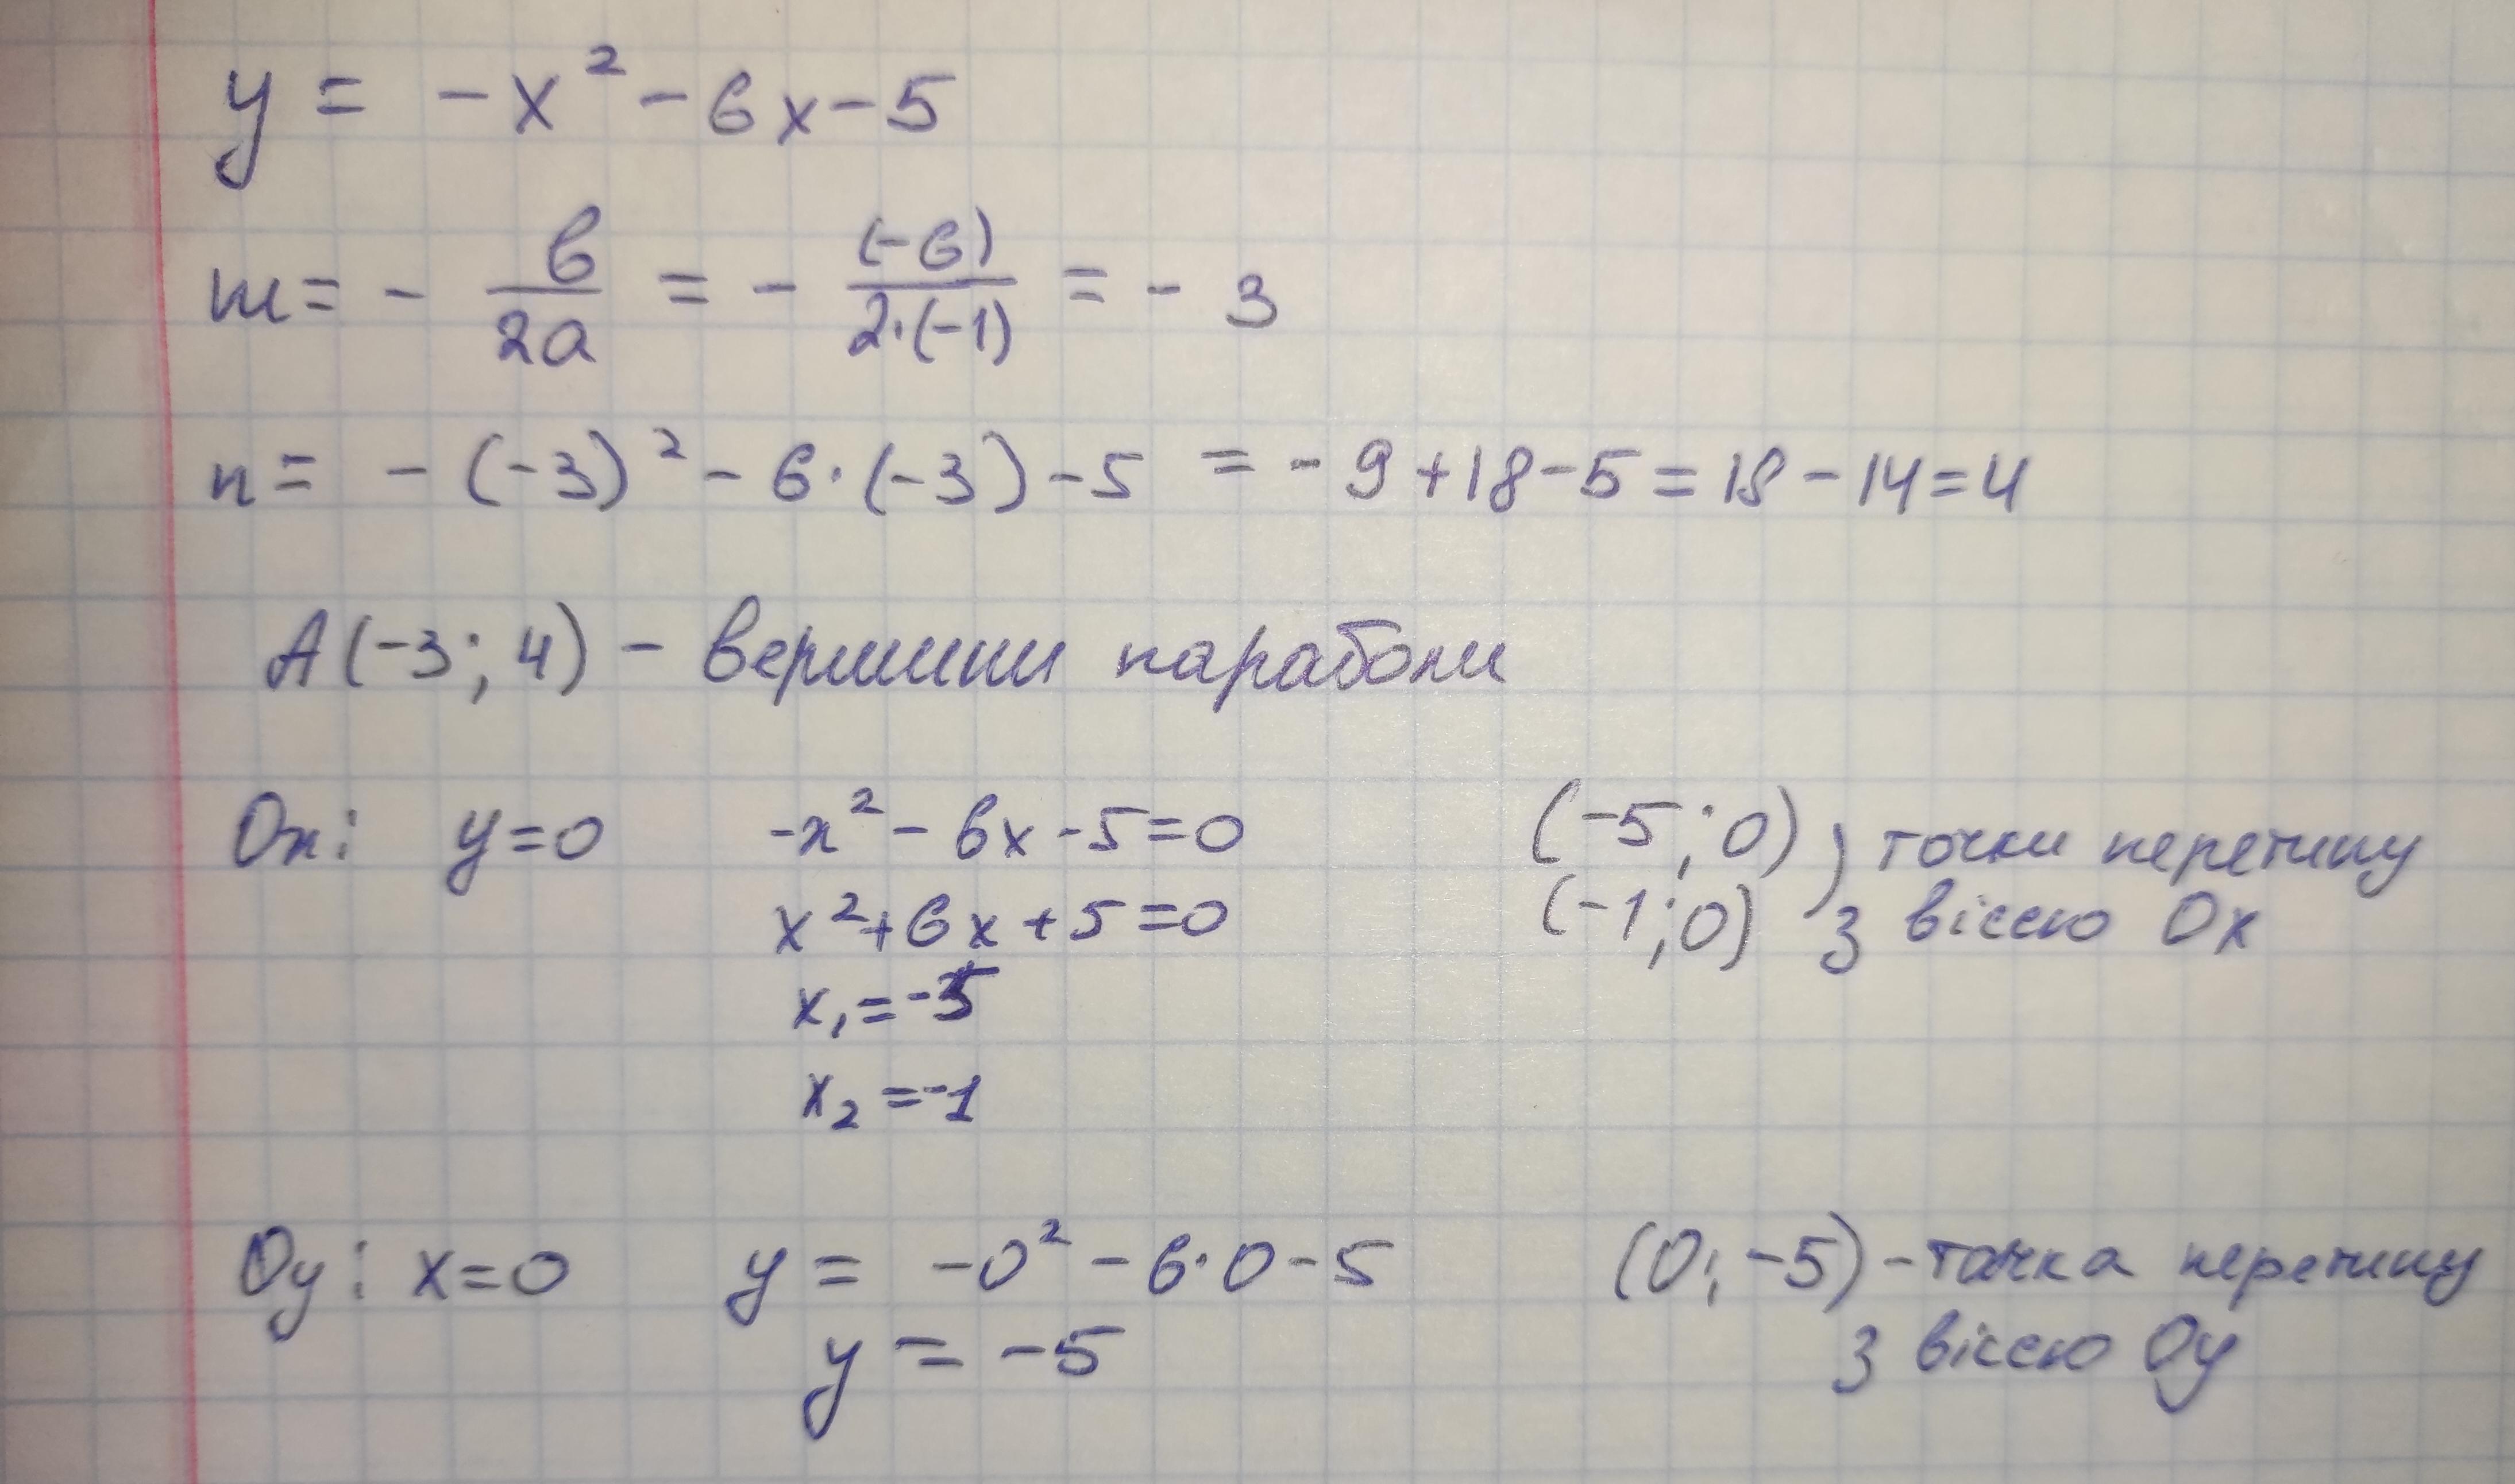 y = -x² - 6x - 5
m = - в/2a = - (-6)/2·(-1) = - 3
n = - (-3)² - 6·(-3) - 5 = - 9 + 18 - 5 = 18 - 14 = 4
A(-3; 4) - вершини параболи
Ox: y=0 -x² - 6x - 5=0 (-5; 0) , точки перетину
x² + 6x + 5=0 (-1; 0) з віссю Ox
x₁ = -5
x₂ = -1
Oy: x=0 y = -0² - 6·0 - 5 (0; -5) - точка перетину
y = -5 з віссю Oy